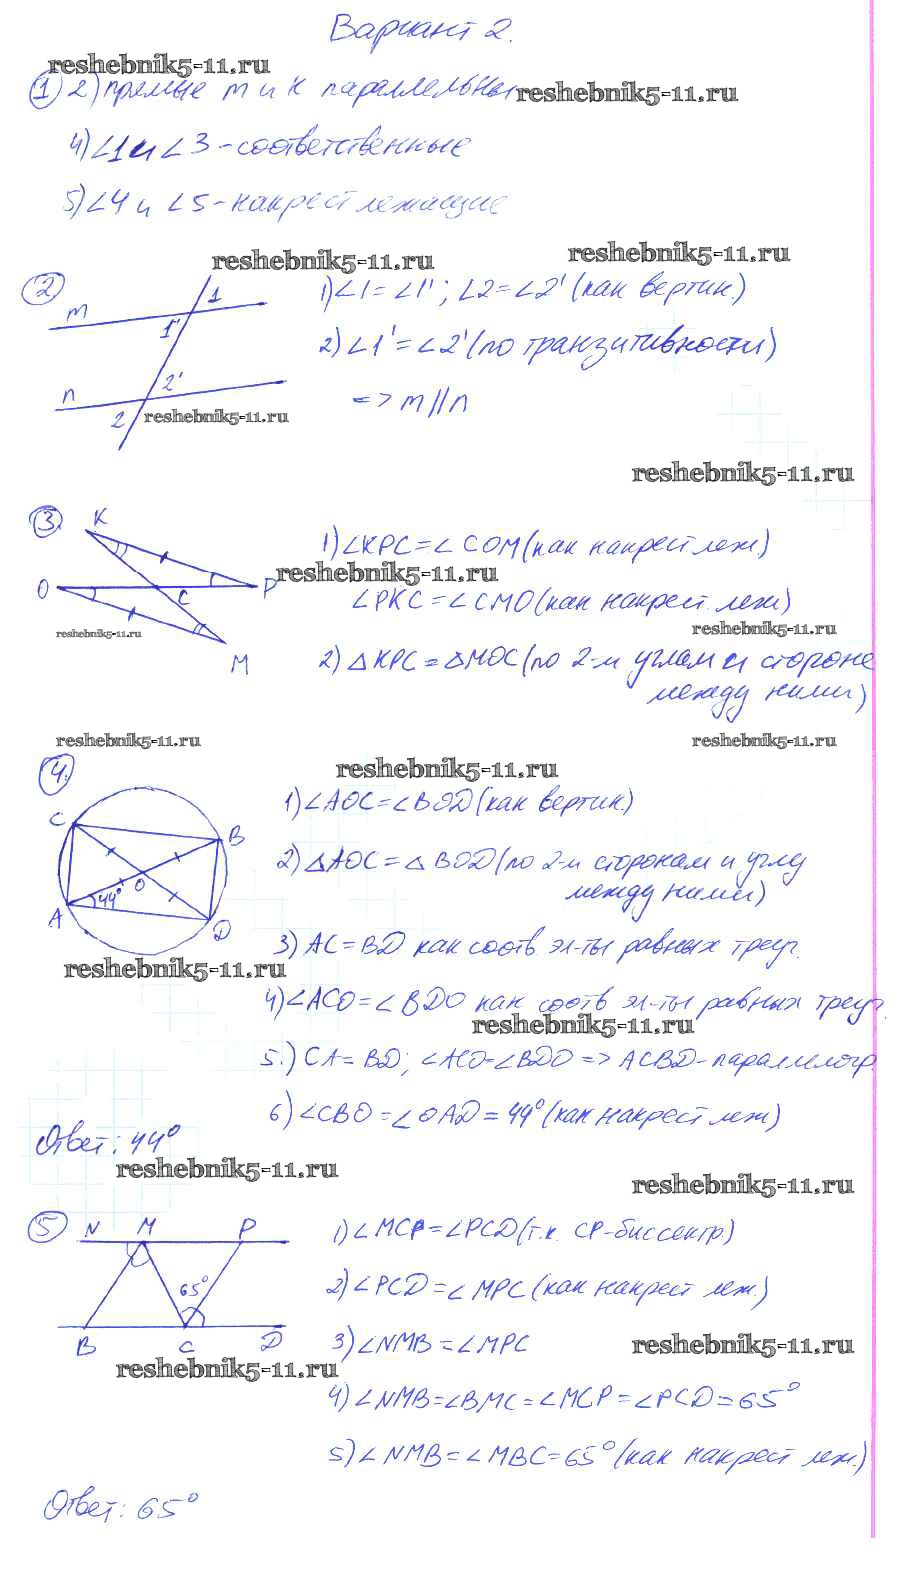 Вариант 2.
reshebnik5-11.ru
① 2) прямые m и к параллельны reshebnik5-11.ru
4) ∠1 и ∠3 - соответственные
5) ∠4 и ∠5 - накрест лежащие
reshebnik5-11.ru reshebnik5-11.ru
② m 1 1' n 2' 2
1) ∠1 = ∠1'; ∠2 = ∠2' (как вертик.)
2) ∠1' = ∠2' (по транзитивности)
=> m||n
reshebnik5-11.ru
reshebnik5-11.ru
③ K O C P M
1) ∠KPC = ∠COM (как накрест леж)
reshebnik5-11.ru
∠PKC = ∠CMO (как накрест. леж)
reshebnik5-11.ru reshebnik5-11.ru
2) △KPC = △MOC (по 2-м углам и стороне
между ними)
reshebnik5-11.ru reshebnik5-11.ru
reshebnik5-11.ru
④. C B O 44° A D
1) ∠AOC = ∠BOD (как вертик.)
2) △AOC = △BOD (по 2-м сторонам и углу
между ними)
3) AC = BD как соотв эл-ты равных треуг.
reshebnik5-11.ru
4) ∠ACO = ∠BDO как соотв эл-ты равных треуг.
reshebnik5-11.ru
5.) CA = BD; ∠ACO = ∠BDO => ACBD - параллелогр.
6) ∠CBO = ∠OAD = 44° (как накрест леж)
Ответ: 44°
reshebnik5-11.ru reshebnik5-11.ru
⑤ N M P 65° B C D
1) ∠MCP = ∠PCD (т.к. CP - биссектр.)
2) ∠PCD = ∠MPC (как накрест леж.)
3) ∠NMB = ∠MPC
reshebnik5-11.ru reshebnik5-11.ru
4) ∠NMB = ∠BMC = ∠MCP = ∠PCD = 65°
5) ∠NMB = ∠MBC = 65° (как накрест леж.)
Ответ: 65°